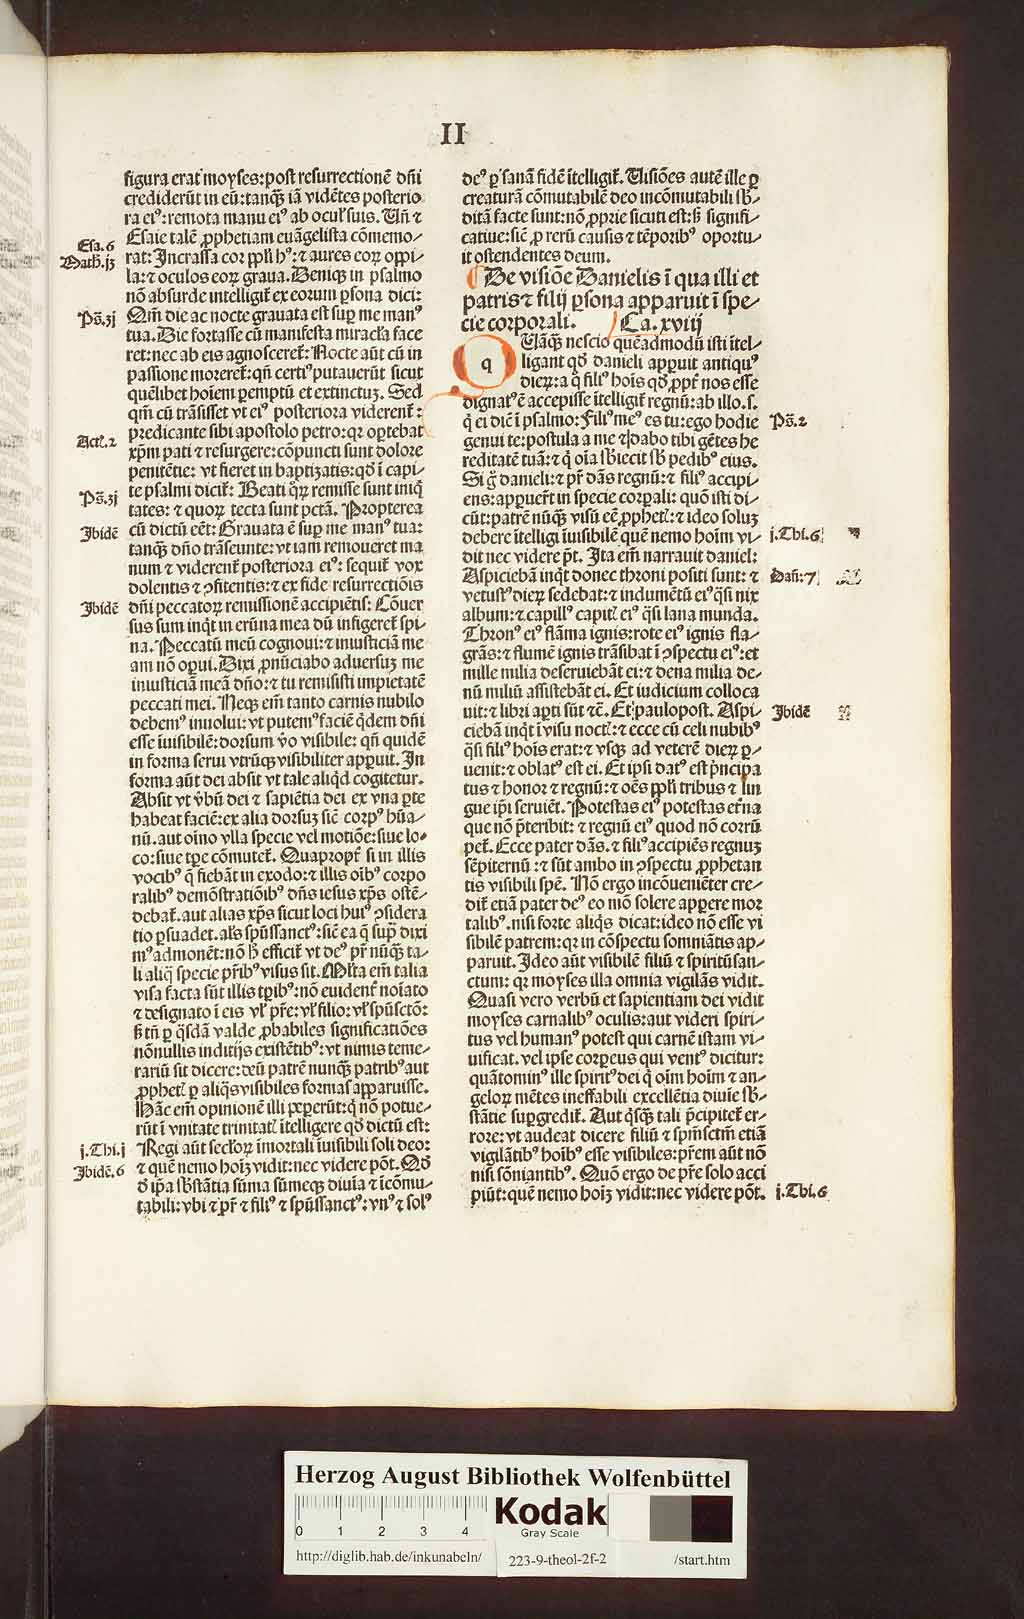 II
figura erat moyses: post resurrectionē dñi
crediderūt in eū: tanq̄ꝫ iā vidētes posterio
ra eiꝰ: remota manu eiꝰ ab oculꝭ suis. Uñ ⁊
Esaie talē ꝓphetiam euāgelista cōmemo-
Esa.6
rat: Incrassa cor ppłi hꝰ: ⁊ aures eoꝝ oppi-
Math.jꝫ
la: ⁊ oculos eoꝝ graua. Deniqꝫ in psalmo
nō absurde intelligit̄ ex eorum ꝑsona dici:
Qm̄ die ac nocte grauata est suꝑ me manꝰ
Pš.ꝫj
tua. Die fortasse cū manifesta miracła face
ret: nec ab eis agnosceret̄: Nocte aūt cū in
passione moreret̄: qñ certiꝰ putauerūt sicut
quēlibet hoīem ꝑemptū et extinctuꝫ. Sed
qm̄ cū trāsisset vt eiꝰ posteriora viderent̄:
predicante sibi apostolo petro: qꝛ optebat
Act.2
xp̄m pati ⁊ resurgere: cōpuncti sunt dolore
penitētie: vt fieret in baptizatis: qđ ī capi-
te psalmi dicit̄: Beati q̄ꝝ remisse sunt iniq̄
Pš.ꝫj
tates: ⁊ quoꝝ tecta sunt pctā. Propterea
cū dictū eēt: Grauata ē suꝑ me manꝰ tua:
Ibidē
tanq̄ꝫ dño trāseunte: vt iam remoueret ma
num ⁊ viderent̄ posteriora eiꝰ: sequit̄ vox
dolentis ⁊ ꝯfitentis: ⁊ ex fide resurrectiōis
dñi peccatoꝝ remissionē accipiētis: Cōuer
Ibidē
sus sum inq̄t in erūna mea dū infigeret̄ spi-
na. Peccatū meū cognoui: ⁊ iniusticiā me
am nō oꝑui. Dixi ꝓnūciabo aduersuꝫ me
iniusticiā meā dño: ⁊ tu remisisti impietatē
peccati mei. Neqꝫ em̄ tanto carnis nubilo
debemꝰ inuolui: vt putemꝰ faciē q̄dem dñi
esse īuisibilē: dorsum v̄o visibile: qñ quidē
in forma serui vtrūqꝫ visibiliter apꝑuit. In
forma aūt dei absit vt tale aliq̄d cogitetur.
Absit vt v̄bū dei ⁊ sapiētia dei ex vna ꝑte
habeat faciē: ex alia dorsuꝫ sic̄ corpꝰ hūa-
nū. aut oīno vlla specie vel motiōe: siue lo-
co: siue tꝑe cōmutet̄. Quapropt̄ si in illis
vocibꝰ q̄ fiebāt in exodo: ⁊ illis oībꝰ corpo
ralibꝰ demōstratiōibꝰ dñs iesus xp̄s ostē-
debat̄. aut alias xp̄s sicut loci huiꝰ ꝯsidera
tio ꝑsuadet. alꝭs spūssanctꝰ: sic̄ ea q̄ sup̄ dixi
mꝰ admonēt: nō h̄ efficit̄ vt deꝰ pr̄ nūq̄ꝫ ta-
li aliq̄ specie pr̄ibꝰ visus sit. Młta em̄ talia
visa facta sūt illis tꝑibꝰ: nō euident̄ noīato
⁊ designato ī eis vł pr̄e: vł filio: vł spūsctō:
s̄ tñ ꝑ q̄sdā valde ꝓbabiles significatiōes
nōnullis inditijs existētibꝰ: vt nimis teme-
rariū sit dicere: deū patrē nunq̄ꝫ patribꝰ aut
ꝓphetꝭ ꝑ aliq̄s visibiles formas apparuisse.
Hāc em̄ opinionē illi peꝑerūt: q̄ nō potue-
rūt ī vnitate trinitatꝭ ītelligere qđ dictū est:
Regi aūt secłoꝝ īmortali īuisibili soli deo:
j.Thi.j
⁊ quē nemo hoīꝫ vidit: nec videre pōt. Qđ
Ibidē.6
đ iꝑa sb̄stātia sūma sūmeqꝫ diuīa ⁊ īcōmu-
tabili: vbi ⁊ pr̄ ⁊ filiꝰ ⁊ spūssanctꝰ: vnꝰ ⁊ solꝰ
deꝰ ꝑ sanā fidē ītelligit̄. Uisiōes autē ille ꝑ
creaturā cōmutabilē deo incōmutabili sb̄-
ditā facte sunt: nō ꝓprie sicuti est: s̄ signifi-
catiue: sic̄ ꝓ rerū causis ⁊ tēporibꝰ oportu-
it ostendentes deum.
De visiōe Danielis ī qua illi et
patris ⁊ filij ꝑsona apparuit ī spe-
cie corporali. Ca. xviij
q Uāq̄ꝫ nescio quēadmodū isti ītel-
ligant qđ danieli apꝑuit antiquꝰ
dieꝝ: a q̄ filiꝰ hoīs qđ ꝓpt̄ nos esse
dignatꝰ ē accepisse ītelligit̄ regnū: ab illo .s.
q̄ ei dic̄ ī psalmo: Filiꝰ meꝰ es tu: ego hodie
Pš.2
genui te: postula a me ⁊ dabo tibi gētes he
reditatē tuā: ⁊ q̄ oīa sb̄iecit sb̄ pedibꝰ eius.
Si g̊ danieli: ⁊ pr̄ dās regnū: ⁊ filiꝰ accipi-
ens: apꝑuer̄t in specie corꝑali: quō isti di-
cūt: patrē nūq̄ꝫ visū eē ꝓphetꝭ: ⁊ ideo soluꝫ
debere ītelligi īuisibilē quē nemo hoīm vi-
j.Thi.6
dit nec videre p̄t. Ita em̄ narrauit daniel:
Aspiciebā inq̄t donec throni positi sunt: ⁊
Dañ.7
vetustꝰ dieꝝ sedebat: ⁊ indumētū eiꝰ q̄si nix
album: ⁊ capillꝰ capitꝭ eiꝰ q̄si lana munda.
Thronꝰ eiꝰ flāma ignis: rote eiꝰ ignis fla-
grās: ⁊ flumē ignis trāsibat ī ꝯspectu eiꝰ: et
mille milia deseruiebāt ei: ⁊ dena milia de-
nū miliū assistebāt ei. Et iudicium colloca
uit: ⁊ libri aꝑti sūt ⁊c̄. Et paulopost. Aspi-
Ibidē
ciebā inq̄t ī visu noctꝭ: ⁊ ecce cū celi nubibꝰ
q̄si filiꝰ hoīs erat: ⁊ vsqꝫ ad veterē dieꝝ ꝑ-
uenit: ⁊ oblatꝰ est ei. Et ipsi datꝰ est p̄ncipa
tus ⁊ honor ⁊ regnū: ⁊ oēs ppłi tribus ⁊ lin
gue ip̄i seruiēt. Potestas eiꝰ potestas et̄na
que nō p̄teribit: ⁊ regnū eiꝰ quod nō corrū
pet̄. Ecce pater dās. ⁊ filiꝰ accipiēs regnuꝫ
sēpiternū: ⁊ sūt ambo in ꝯspectu ꝓphetan
tis visibili spē. Nō ergo incōueniēter cre-
dit̄ etiā pater deꝰ eo mō solere apꝑere mor
talibꝰ. nisi forte aliq̄s dicat: ideo nō esse vi
sibilē patrem: qꝛ in cōspectu somniātis ap-
paruit. Ideo aūt visibilē filiū ⁊ spiritū san-
ctum: qꝛ moyses illa omnia vigilās vidit.
Quasi vero verbū et sapientiam dei vidit
moyses carnalibꝰ oculis: aut videri spiri-
tus vel humanꝰ potest qui carnē istam vi-
uificat. vel ipse corꝑeus qui ventꝰ dicitur:
quātominꝰ ille spiritꝰ dei q̄ oīm hoīm ⁊ an-
geloꝝ mētes ineffabili excellētia diuīe sb̄-
stātie suꝑgredit̄. Aut q̄sq̄ꝫ tali p̄cipitet̄ er-
rore: vt audeat dicere filiū ⁊ spm̄sctm̄ etiā
vigilātibꝰ hoībꝰ esse visibiles: pr̄em aūt nō
nisi sōniantibꝰ. Quō ergo de pr̄e solo acci
piūt: quē nemo hoīꝫ vidit: nec videre pōt.
j.Thi.6
Herzog August Bibliothek Wolfenbüttel
0 1 2 3 4
Kodak
Gray Scale
http://diglib.hab.de/inkunabeln/
223-9-theol-2f-2
/start.htm